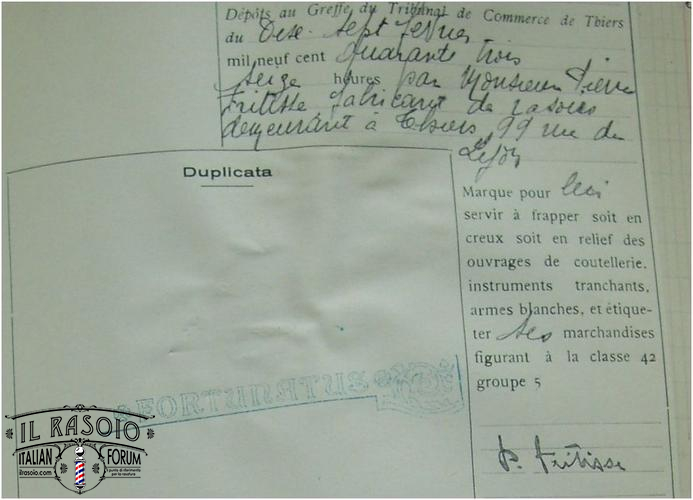 Dépôts au Greffe du Tribunal de Commerce de Thiers
du Dix-sept février
mil neuf cent quarante trois
seize heures par Monsieur Pierre
Fritisse fabricant de rasoirs
demeurant à Thiers, 99 rue de
Lyon
Duplicata
Marque pour lui
servir à frapper soit en
creux soit en relief des
ouvrages de coutellerie,
instruments tranchants,
armes blanches, et étique-
ter ses marchandises
figurant à la classe 42
groupe 5
FORTUNATUS
P. Fritisse
IL RASOIO
ITALIAN FORUM
ilrasoio.com
il punto di riferimento
per la rasatura